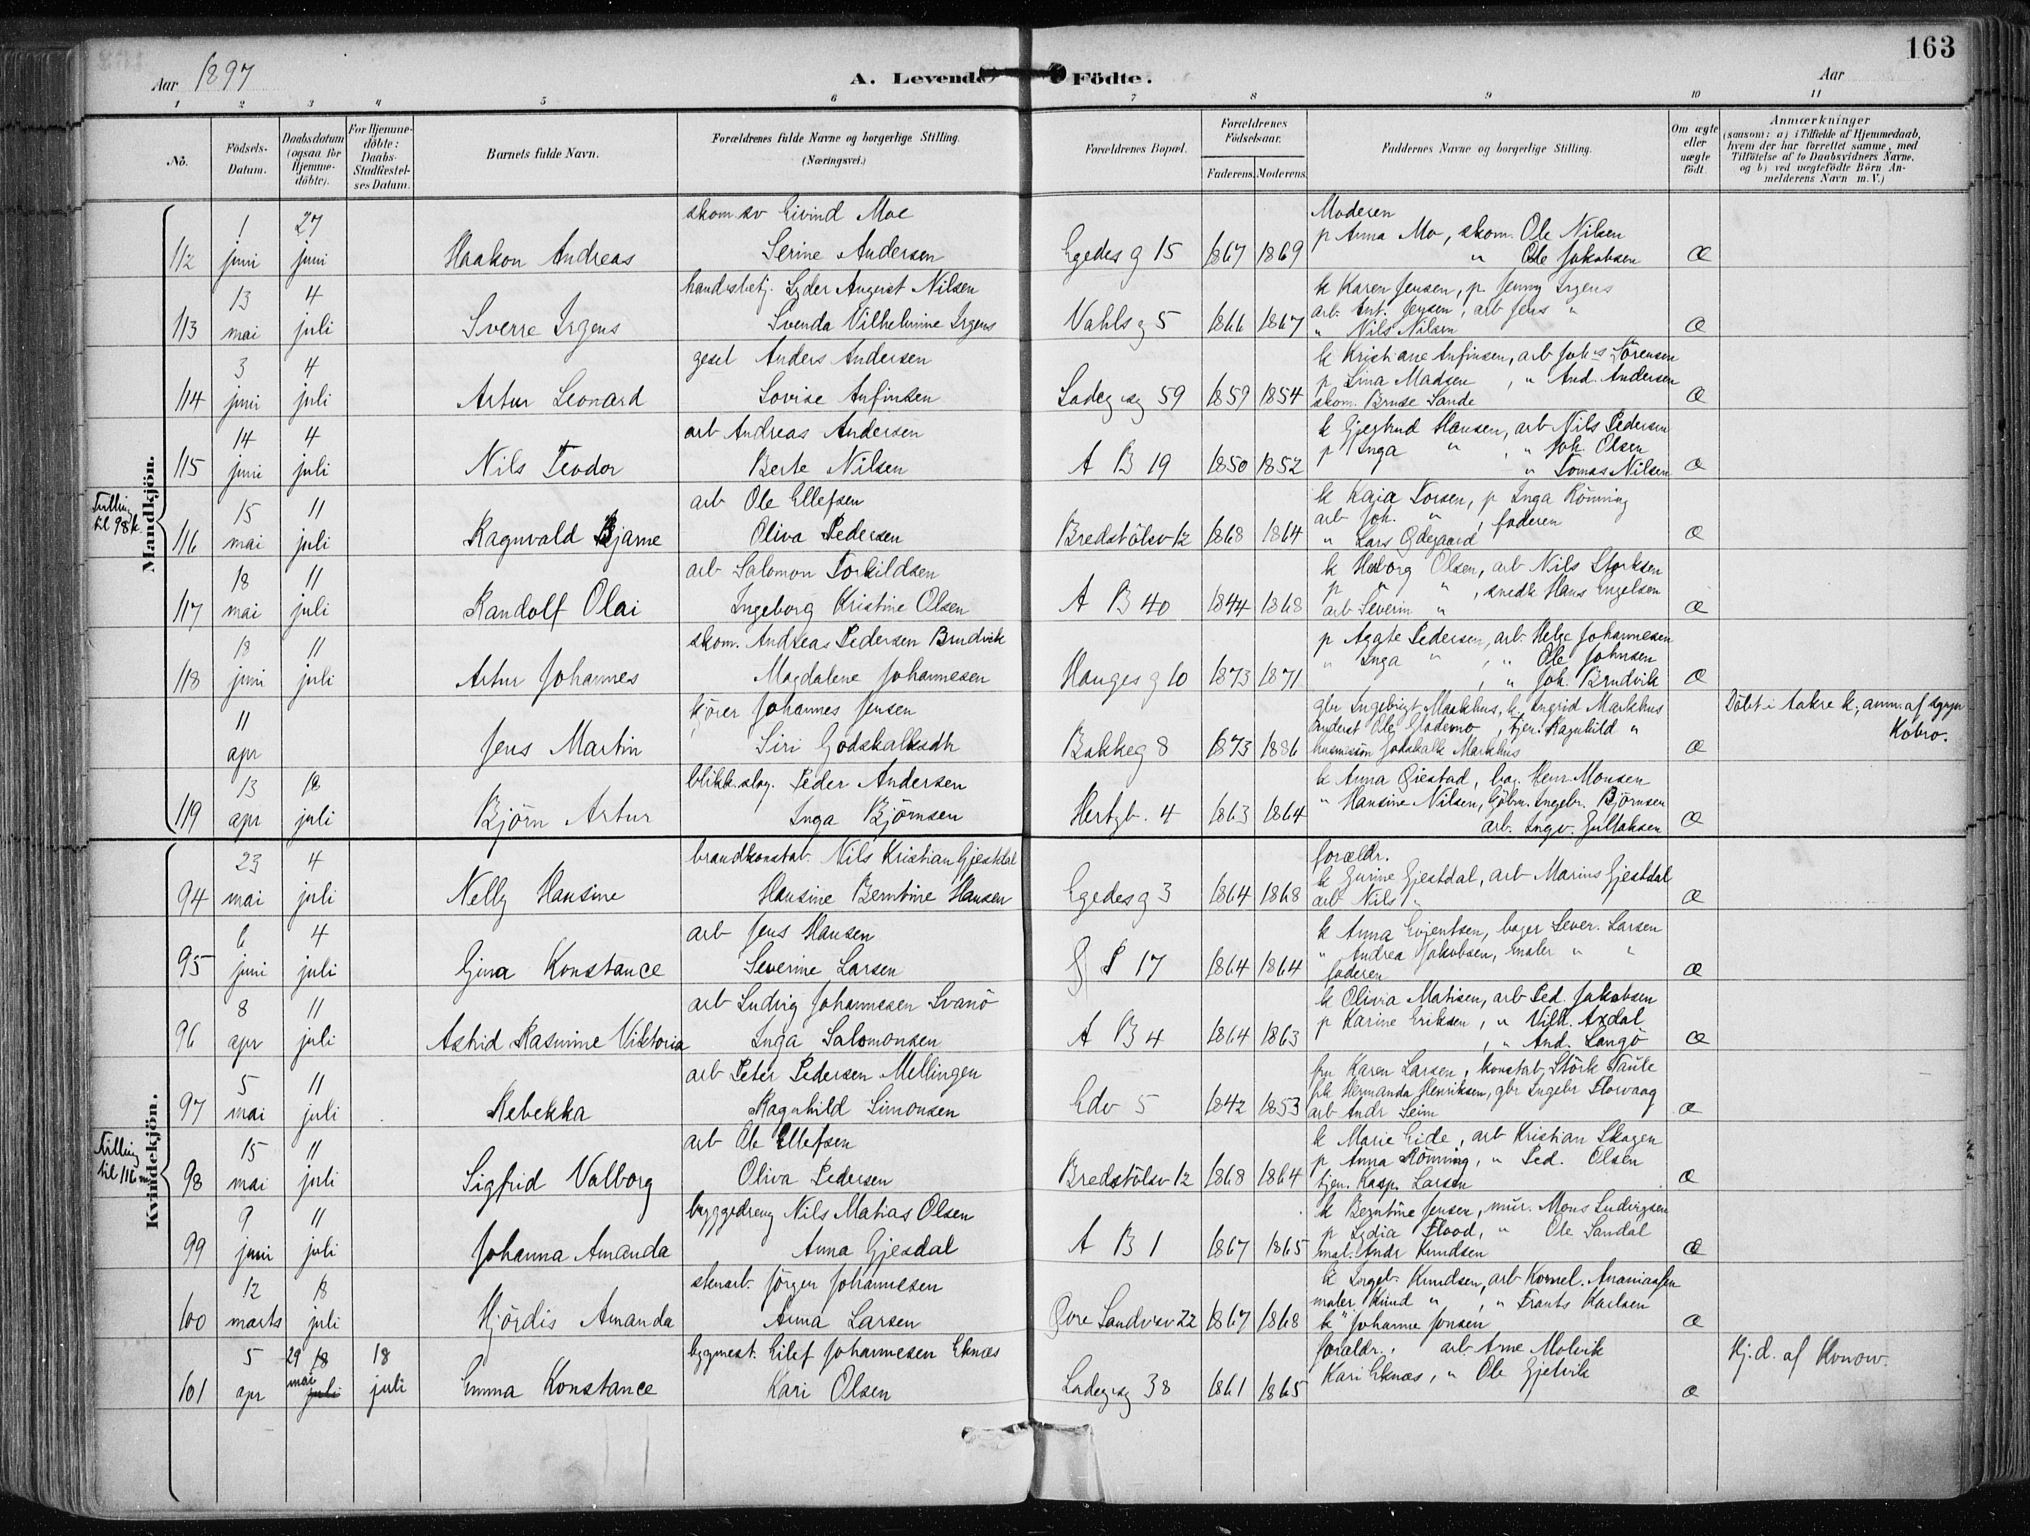 163
Aar 1897 A. Levende Födte. Aar
1 2 3 4 5 6 7 8 9 10 11
No. Födsels-Datum. Daabsdatum (ogsaa for Hjemme-döbte). For Hjemme-döbte: Daabs-Stadfæstel-ses Datum. Barnets fulde Navn. Forældrenes fulde Navne og borgerlige Stilling. (Næringsvei.) Forældrenes Bopæl. Forældrenes Födselsaar. Faderens. Moderens. Faddernes Navne og borgerlige Stilling. Om ægte eller uægte födt. Anmærkninger (saasom: a) i Tilfælde af Hjemmedaab, hvem der har forrettet samme, med Tilföielse af to Daabsvidners Navne, og b) ved uægtefödte Börn An-melderens Navn m.V.)
Mandkjön.
1 27 skom.sv Eivind Moe Moderen
p Anna Mo, skom. Ole Nilsen
112 juni juni Haakon Andreas Serine Andersen Egedesg 15 1867 1869 " Ole Jakobsen Æ
13 4 handelsbetj. Lyder August Nilsen k Karen Jensen, p Jenny Irgens
arb. Ant. Jensen, arb Jens "
113 mai juli Sverre Irgens Svenda Vilhelmine Irgens Vahlsg 5 1866 1867 " Nils Nilsen Æ
3 4 gesel Anders Andersen k Kristiane Anfinsen, arb Johs Sörensen
p Lina Madsen, " And. Andersen
114 juni juli Artur Leonard Lovise Anfinsen Ladeg.sg 59 1859 1854 skom. Bruse Sande Æ
14 4 arb Andreas Andersen k Gjertrud Hansen, arb Nils Pedersen
p Inga " , " Joh. Olsen
115 juni juli Nils Teodor Berte Nilsen A B 19 1850 1852 " Tomas Nilsen Æ
Tvilling til 98 k.
15 11 arb Ole Ellefsen k Kaia Torsen, p Inga Rönning
arb Joh. " , faderen
116 mai juli Ragnvald Bjarne Oliva Pedersen Bredstölsv 12 1868 1864 " Lars Ödegaard Æ
18 11 arb Salomon Torkildsen k Heborg Olsen, arb Nils Storksen
p " " , snedk Hans Engelsen
117 mai juli Randolf Olai Ingeborg Kristine Olsen A B 40 1844 1868 arb Severin " Æ
18 11 skom. Andreas Pedersen Brudvik p Agate Pedersen, arb Helge Johannesen
" Inga " , " Ole Johnsen
118 juni juli Artur Johannes Magdalene Johannesen Hauges g 10 1873 1871 , " Joh. Brudvik Æ
11 kjörer Johannes Jensen gbr Ingebrigt Markhus, k Ingrid Markhus Döbt i Aakre k., anm. af sgpr
Ole Godemo, tjen. Ragnhild " Kobro.
apr Jens Martin Siri Godskalksdtr Bakkeg 8 1873 1886 husmsön Godskalk Markhus Æ
13 18 blikk.slag. Peder Andersen k Anna Qiestad, bag. Henr Monsen
" Hansine Nilsen, Ingebr. Björnsen
119 apr juli Björn Artur Inga Björnsen Hertzb. 4 1863 1864 arb. Ingv. Gullaksen Æ
Kvindekjön.
23 4 brandkonstab. Nils Kristian Gjestdal forældr.
k Gurine Gjestdal, arb Marius Gjestdal
94 mai juli Nelly Hansine Hansine Berntine Hansen Egedesg 3 1864 1868 arb Nils " Æ
6 4 arb Jens Hansen k Anna Evjentsen, bager Sever. Larsen
" Andrea Jakobsen, maler " "
95 juni juli Gina Konstance Severine Larsen G S 17 1864 1864 faderen Æ
8 11 arb Ludvig Johannesen Svanö k Olivia Matisen, arb Ped. Jakobsen
p Karine Eriksen, " Vilh. Axdal
96 apr juli Astrid Rasmine Viktoria Inga Salomonsen A B 4 1864 1863 , " And. Langö Æ
5 11 arb Peter Pedersen Mellingen fru Karen Larsen, konstab. Störk Taule
frk Hermanda Henriksen, gbr Ingebr Florvaag
97 mai juli Rebekka Ragnhild Simonsen Edv 5 1842 1853 arb Andr Seim Æ
Tvilling til 116 m
15 11 arb Ole Ellefsen k Marie Eide, arb Kristian Skagen
p Anna Rönning, " Ped. Olsen
98 mai juli Sigfrid Valborg Oliva Pedersen Bredstölsv 12 1868 1864 tjen. Kasp. Larsen Æ
9 11 bryggedreng Nils Matias Olsen k Berntine Jensen, mur. Mons Ludvigsen
p Lydia Flood, " Ole Sandal
99 juni juli Johanna Amanda Anna Gjesdal A B 1 1867 1865 mat. Andr Knudsen Æ
12 18 stenarb. Jörgen Johannesen k Ingeb. Knudsen, arb Kornel. Ananiassen
maler Knud " , " Frants Karlsen
100 marts juli Hjördis Amanda Anna Larsen Övre Sandvsv 22 1867 1868 k Johanne Jonsen Æ
5 29 18 18 bygmest. Eilef Johannesen Eknæs forældr., arb Arne Molvik Hj.d. af Konow.
101 apr mai juli juli Emma Konstance Kari Olsen Ladeg.sg 38 1861 1865 Kari Eknæs, " Ole Gjelvik Æ